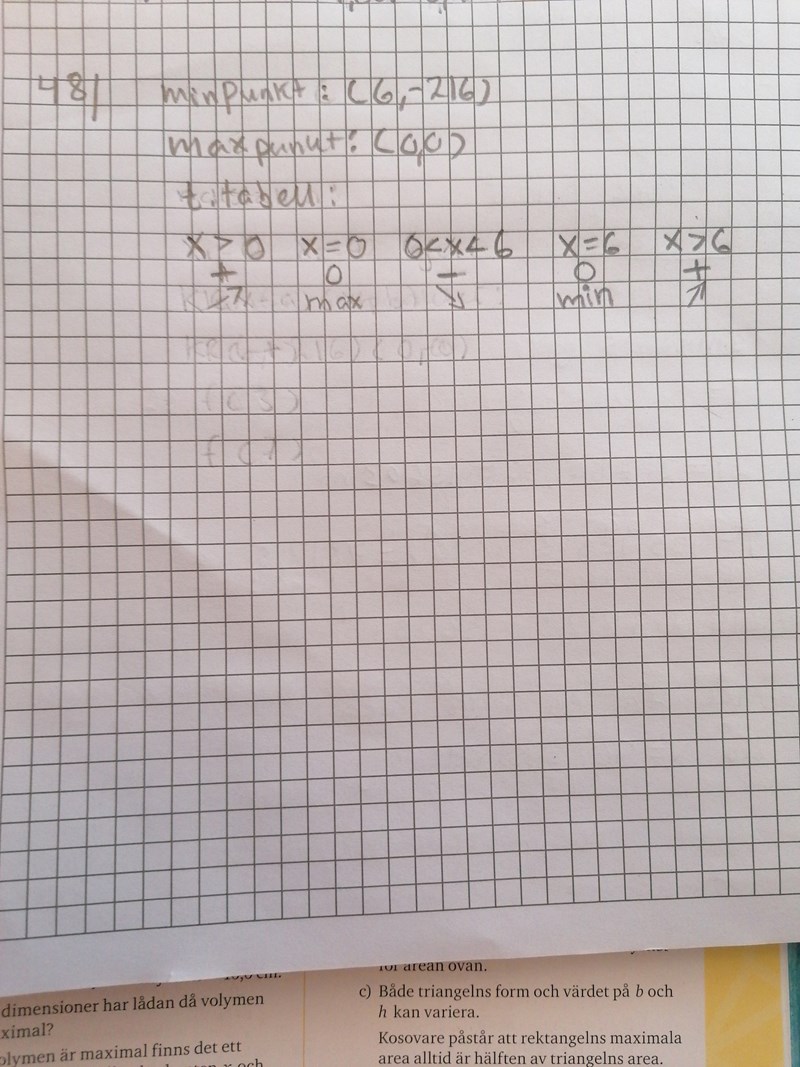 481 minpunkt: (6,-216)
maxpunut: (0,0)
t.tabell:
x > 0 x=0 0<x<6 x=6 x>6
+ 0 − 0 +
↗ max ↘ min ↗
f(3)
f(7)
dimensioner har lådan då volymen
ximal?
olymen är maximal finns det ett
för arean ovan.
c) Både triangelns form och värdet på b och
h kan variera.
Kosovare påstår att rektangelns maximala
area alltid är hälften av triangelns area.